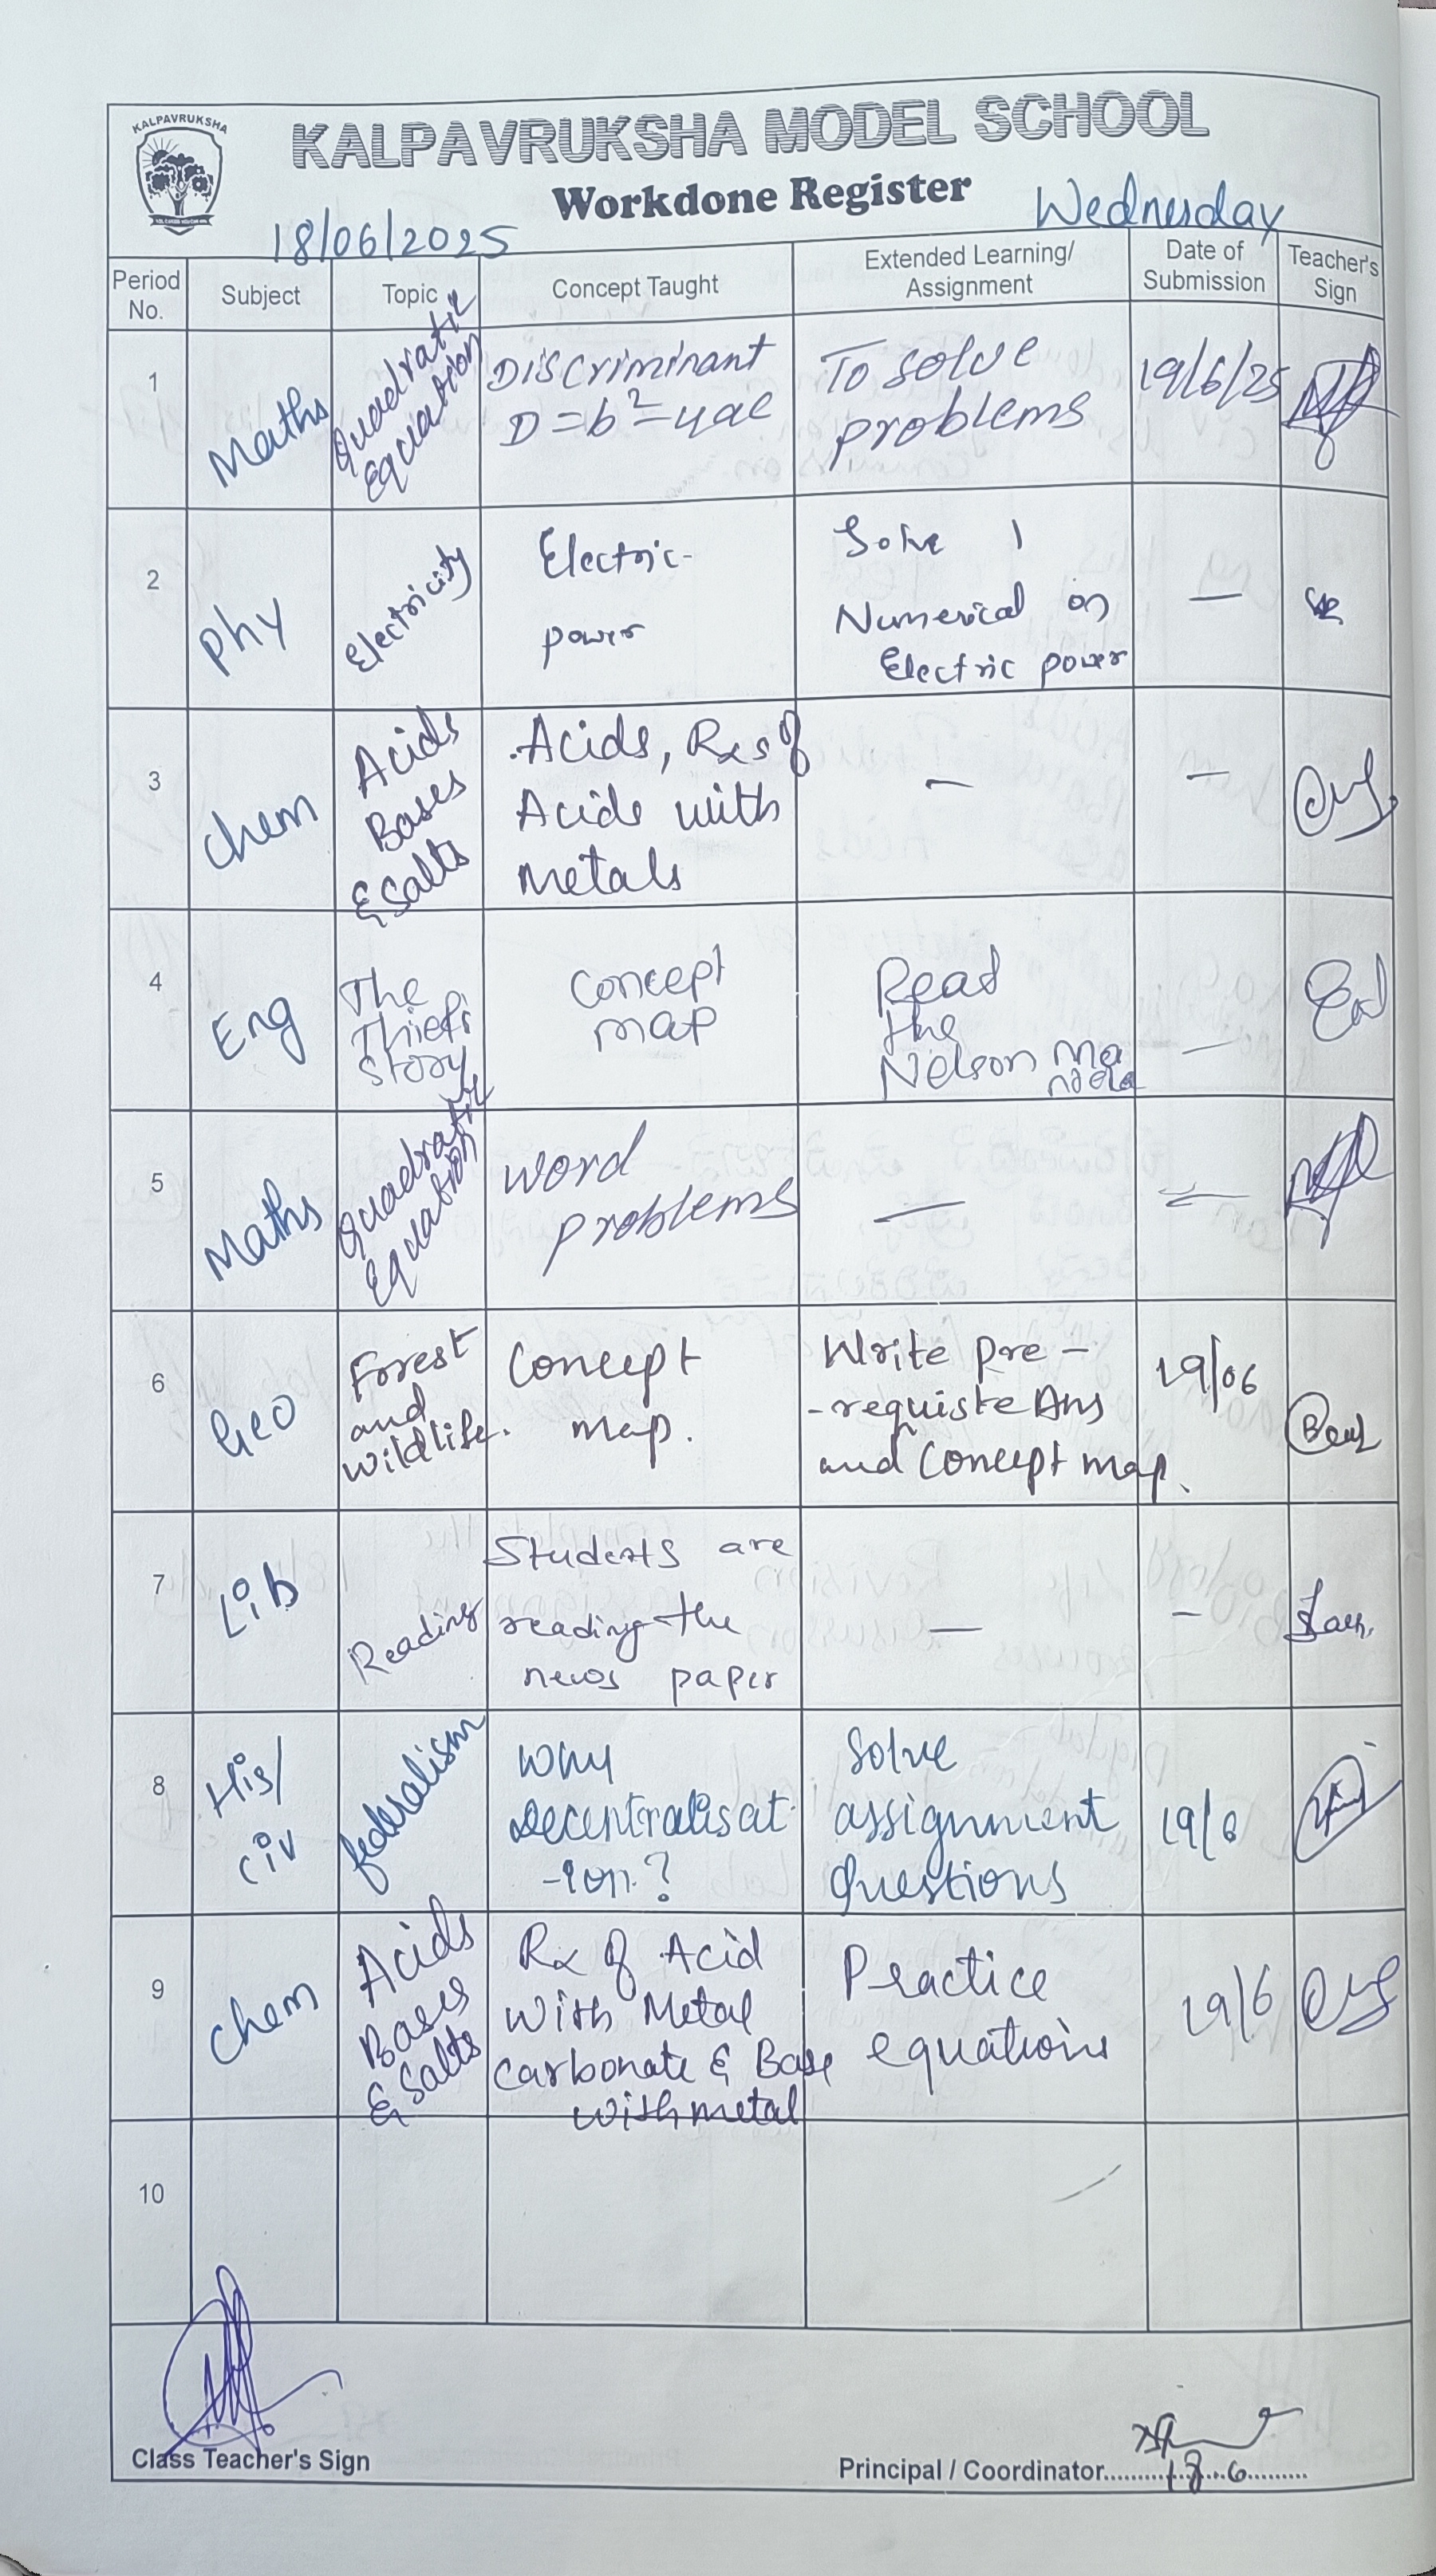 KALPAVRUKSHA
KALPAVRUKSHA MODEL SCHOOL
Workdone Register
Wednesday
18/06/2025
Period No.
Subject
Topic
Concept Taught
Extended Learning/
Assignment
Date of
Submission
Teacher's
Sign
1
Maths
Quadratic
Equation
Discriminant
D = b² - 4ac
To solve
problems
19/6/25
2
Phy
Electricity
Electric-
power
Solve 1
Numerical on
Electric power
—
3
Chem
Acids
Bases
& Salts
Acids, Rxs of
Acids with
Metals
—
—
4
Eng
The
Thief's
Story
Concept
map
Read
the
Nelson Ma
ndela
—
5
Maths
Quadratic
Equation
Word
problems
—
—
6
Geo
Forest
and
wildlife.
Concept
map.
Write pre -
- requiste Ans
and Concept map.
19/06
7
Lib
Reading
Students are
reading the
news paper
—
—
8
His/
civ
federalism
Why
decentralisat
-ion?
Solve
assignment
questions
19/6
9
Chem
Acids
Bases
& Salts
Rx of Acid
With Metal
carbonate & Base
with metal
Practice
equations
19/6
10
Class Teacher's Sign
Principal / Coordinator
18.6